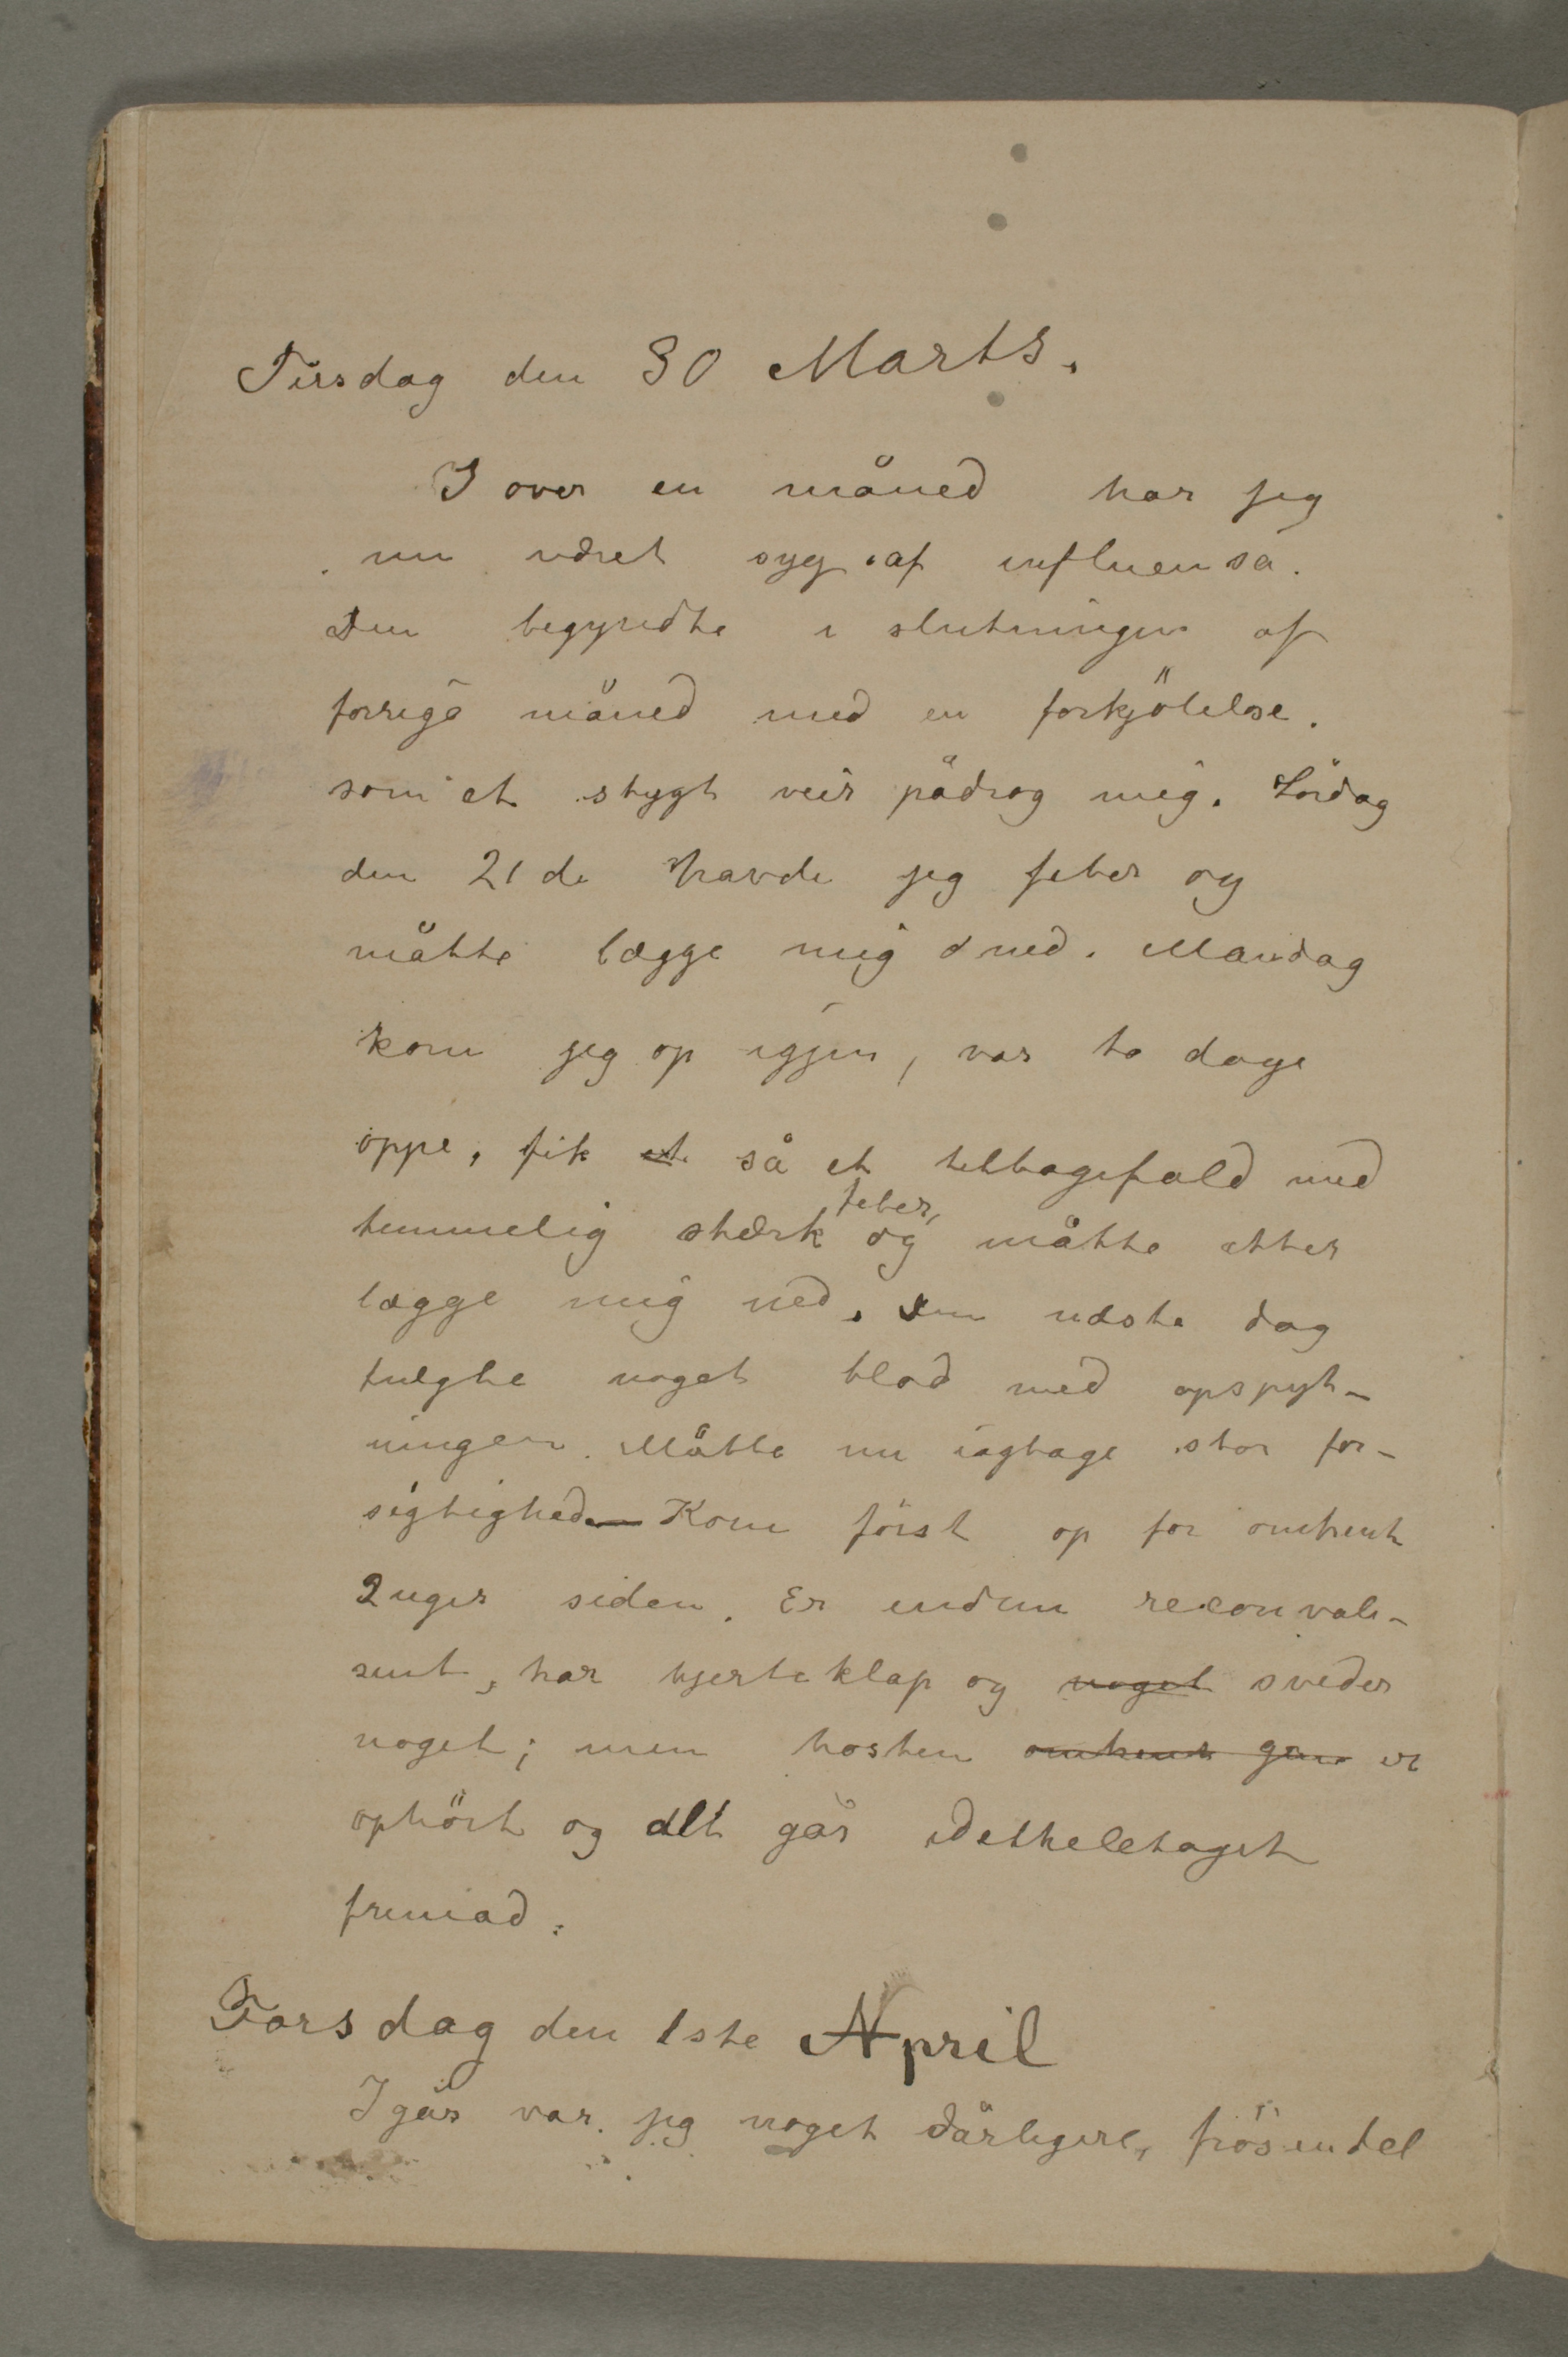 Tirsdag den 30 Marts.
I over en måned har jeg
nu været syg af influensa.
Den begyndte i slutningen af
forrige måned med en forkjölelse.
som et stygt veir pådrog mig. Lördag
den 21de havde jeg feber og
måtte lægge mig ned. Mandag
kom jeg op igjen, var to dage
oppe, fik et så et tilbagefald med
temmelig stærk feber, og måtte atter
lægge mig ned. Den næste dag
fulgte noget blod med opspyt-
ningen. Måtte nu iagtage stor for-
sigtighed. Kom först op for omtrent
2 uger siden. Er endnu reconvale-
sent, har hjerteklap og noget sveder
noget; men hosten omtrent gan er
ophört og alt går idetheletaget
fremad.
Torsdag den 1ste April
Igår var jeg noget dårligere, frös en del